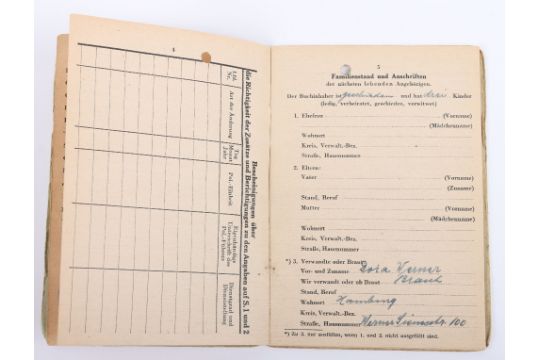 4
Bescheinigungen über
die Richtigkeit der Zusätze und Berichtigungen zu den Angaben auf S. 1 und 2
Lfd.
Nr.
Art der Änderung
Tag
Monat
Jahr
Pol.-Einheit
Eigenhändige
Unterschrift des
Pol.-Führers
Dienstgrad und
Dienststellung
5
Familienstand und Anschriften
der nächsten lebenden Angehörigen.
Der Buchinhaber ist geschieden und hat drei Kinder
(ledig, verheiratet, geschieden, verwitwet)
1. Ehefrau: (Vorname)
(Mädchenname)
Wohnort
Kreis, Verwalt.-Bez.
Straße, Hausnummer
2. Eltern:
Vater (Vorname)
(Zuname)
Stand, Beruf
Mutter (Vorname)
(Mädchenname)
Wohnort
Kreis, Verwalt.-Bez.
Straße, Hausnummer
*) 3. Verwandte oder Braut:
Vor- und Zuname Dora Werner
Wie verwandt oder ob Braut Braut
Stand, Beruf
Wohnort Hamburg
Kreis, Verwalt.-Bez.
Straße, Hausnummer Werner Siemsstr. 100
*) Zu 3. nur ausfüllen, wenn 1. und 2. nicht ausgefüllt sind.